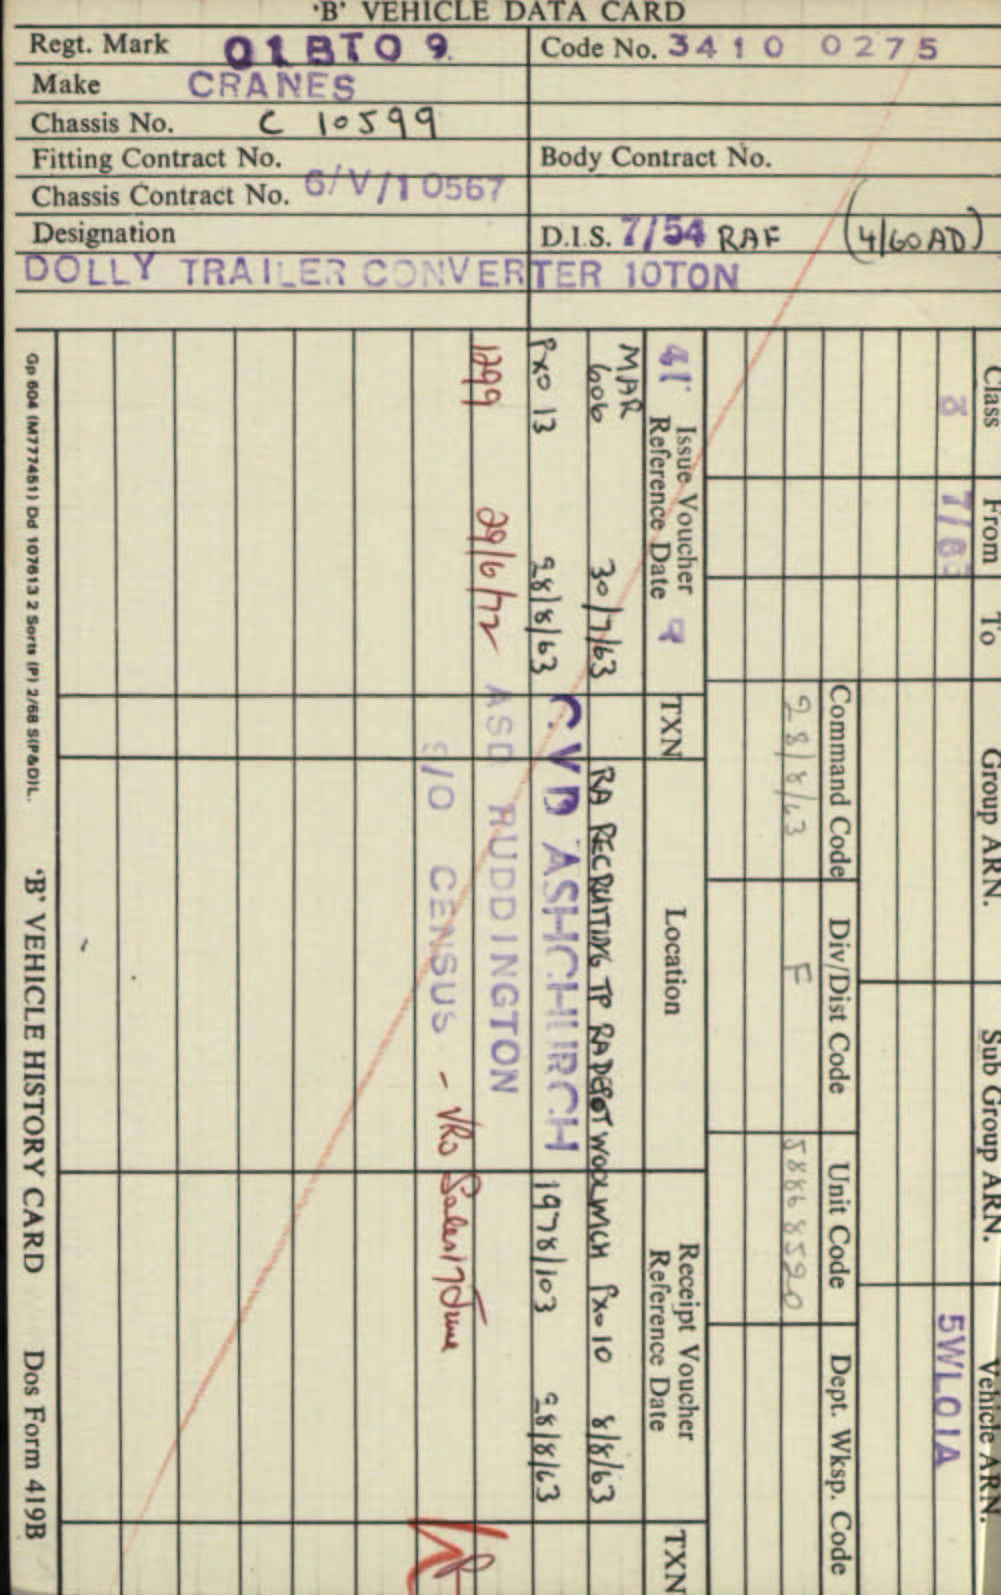 'B' VEHICLE DATA CARD
Regt. Mark 01BT09. Code No. 3410 0275
Make CRANES
Chassis No. C 10599
Fitting Contract No. Body Contract No.
Chassis Contract No. 6/V/10567
Designation D.I.S. 7/54 RAF (4/60AD)
DOLLY TRAILER CONVERTER 10TON
Class From To Group ARN. Sub Group ARN. Vehicle ARN.
5WL01A
Command Code Div/Dist Code Unit Code Dept. Wksp. Code
28/8/63 F 58868520
41 Issue Voucher TXN Location Receipt Voucher TXN
Reference Date Reference Date
MAR
606 30/7/63 RA RECRUITING TP RA DEPOT WOOLWICH Pxo 10 8/8/63
Pxo 13 28/8/63 C.V.D ASHCHURCH 1978/103 28/8/63
1299 29/6/72 ASD RUDDINGTON
S/O CENSUS - VRO Sales 17 June
Gp 604 (M777451) Dd 107613 2 Sorts (P) 2/68 S(P&D)L. 'B' VEHICLE HISTORY CARD Dos Form 419B